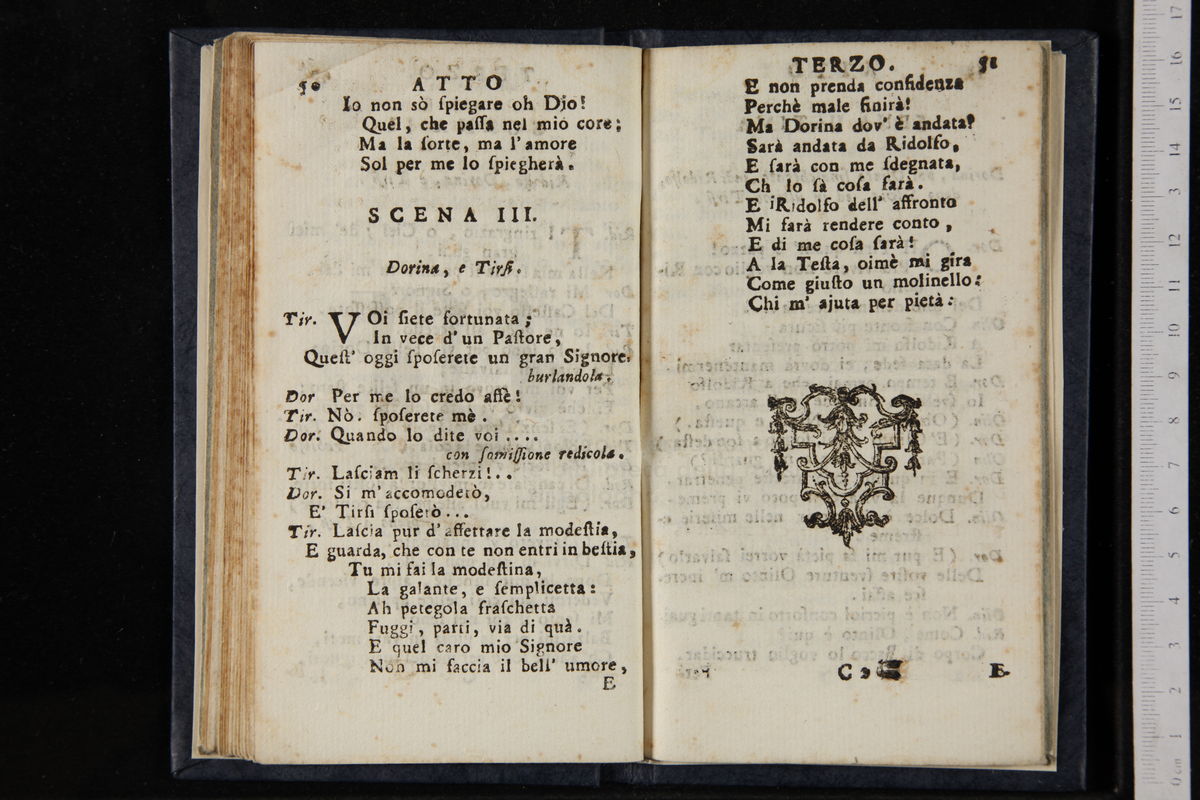 50 ATTO
Io non sò ſpiegare oh Dio!
Quel, che paſſa nel mio core;
Ma la ſorte, ma l'amore
Sol per me lo ſpiegherà.
SCENA III.
Dorina, e Tirſi.
Tir. VOi ſiete fortunata;
In vece d'un Paſtore,
Queſt' oggi ſpoſerete un gran Signore.
burlandola.
Dor Per me lo credo affè!
Tir. Nò. ſpoſerete mè.
Dor. Quando lo dite voi ....
con ſomiſſione redicola.
Tir. Laſciam li ſcherzi!..
Dor. Si m'accomoderò,
E' Tirſi ſpoſerò...
Tir. Laſcia pur d'affettare la modeſtia,
E guarda, che con te non entri in beſtia,
Tu mi fai la modeſtina,
La galante, e ſemplicetta:
Ah petegola fraſchetta
Fuggi, parti, via di quà.
E quel caro mio Signore
Non mi faccia il bell' umore,
E
TERZO. 51
E non prenda confidenza
Perchè male finirà!
Ma Dorina dov' è andata?
Sarà andata da Ridolfo,
E ſarà con me ſdegnata,
Ch lo ſà coſa farà.
E Ridolfo dell' affronto
Mi farà rendere conto,
E di me coſa ſarà!
A la Teſta, oimè mi gira
Come giuſto un molinello:
Chi m' ajuta per pietà:
C 2
E-